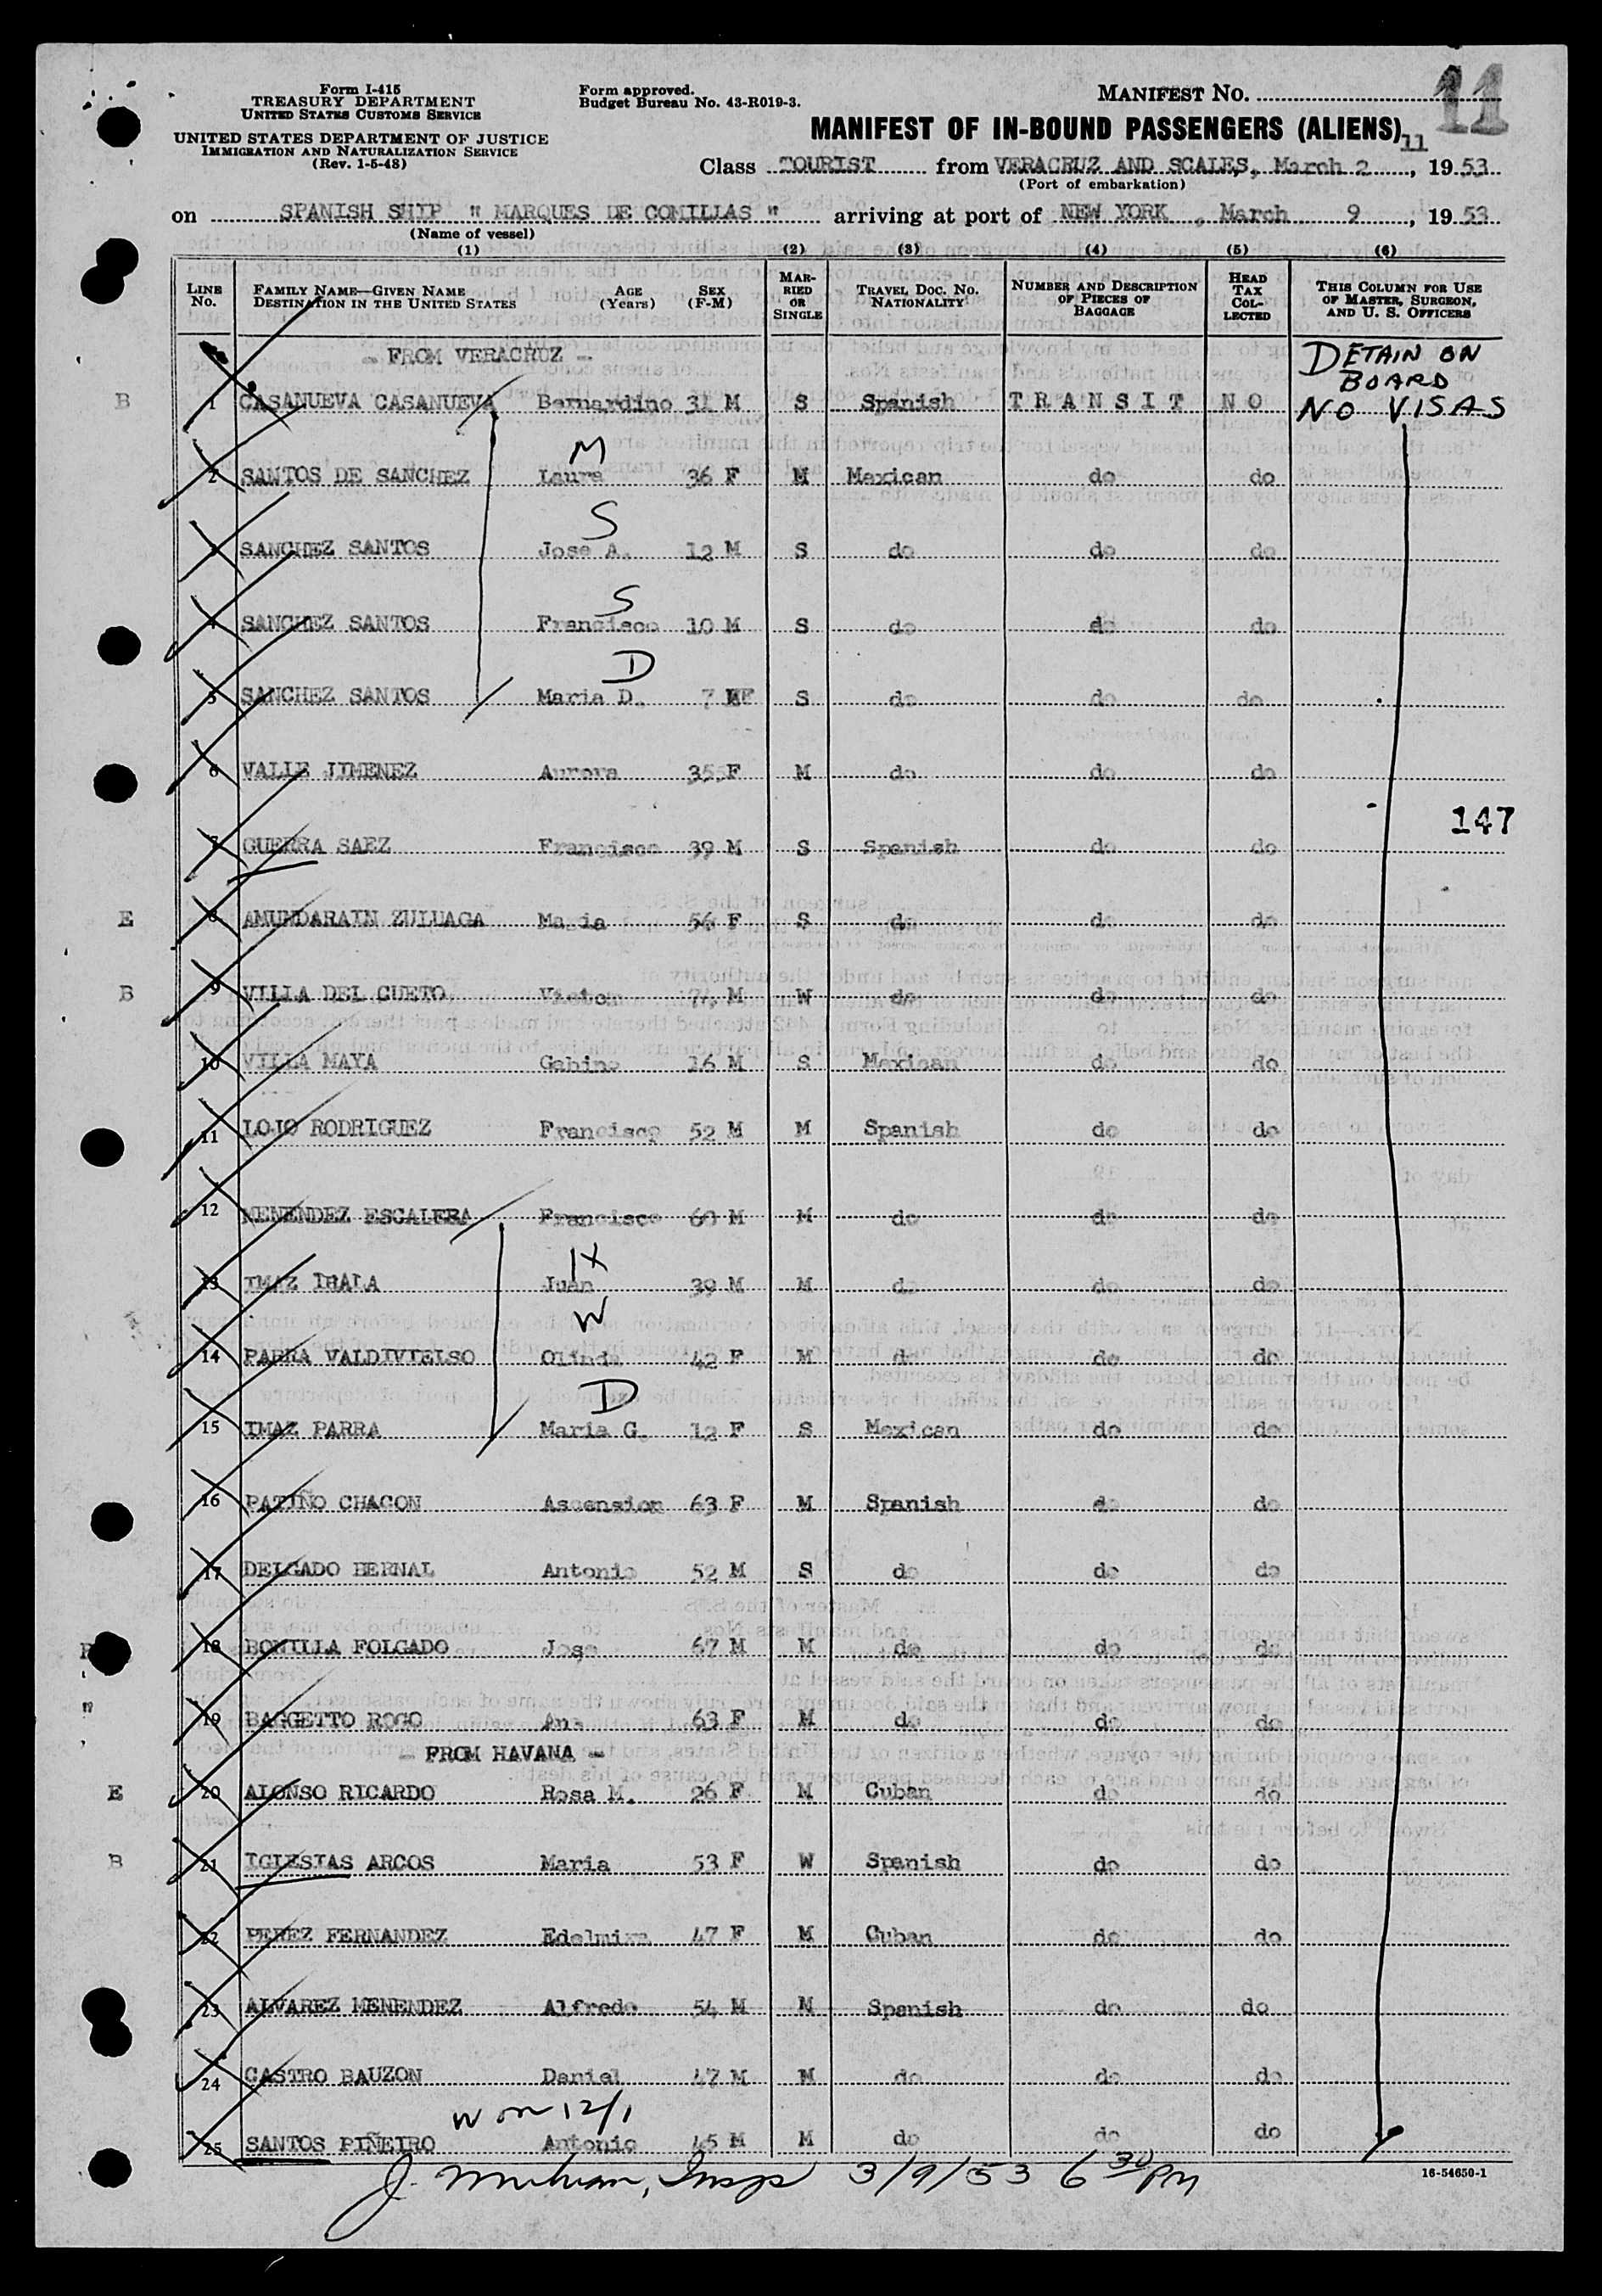 Form I-415
TREASURY DEPARTMENT
UNITED STATES CUSTOMS SERVICE
UNITED STATES DEPARTMENT OF JUSTICE
IMMIGRATION AND NATURALIZATION SERVICE
(Rev. 1-5-48)
Form approved.
Budget Bureau No. 43-R019-3.
MANIFEST No. 11
MANIFEST OF IN-BOUND PASSENGERS (ALIENS) 11
Class TOURIST from VERACRUZ AND SCALES, March 2, 1953
(Port of embarkation)
on SPANISH SHIP " MARQUES DE COMILLAS " arriving at port of NEW YORK, March 9, 1953
(Name of vessel)
(1) (2) (3) (4) (5) (6)
LINE No. FAMILY NAME—GIVEN NAME DESTINATION IN THE UNITED STATES AGE (Years) SEX (F-M) MARRIED OR SINGLE TRAVEL DOC. No. NATIONALITY NUMBER AND DESCRIPTION OF PIECES OF BAGGAGE HEAD TAX COLLECTED THIS COLUMN FOR USE OF MASTER, SURGEON, AND U. S. OFFICERS
- FROM VERACRUZ -
DETAIN ON BOARD
NO VISAS
B 1 CASANUEVA CASANUEVA Bernardino 31 M S Spanish TRANSIT NO
M
2 SANTOS DE SANCHEZ Laura 36 F M Mexican do do
S
3 SANCHEZ SANTOS Jose A. 12 M S do do do
S
4 SANCHEZ SANTOS Francisco 10 M S do do do
D
5 SANCHEZ SANTOS Maria D. 7 F S do do do
6 VALLE JIMENEZ Aurora 35 F M do do do
147
7 GUERRA SAEZ Francisco 39 M S Spanish do do
E 8 AMUNDARAIN ZULUAGA Maria 54 F S do do do
B 9 VILLA DEL CUETO Victor 74 M W do do do
10 VILLA MAYA Gabino 16 M S Mexican do do
11 LOJO RODRIGUEZ Francisco 52 M M Spanish do do
12 MENENDEZ ESCALERA Francisco 60 M M do do do
H
13 IMAZ IBALA Juan 39 M M do do do
W
14 PARRA VALDIVIELSO Olinda 42 F M do do do
D
15 IMAZ PARRA Maria G. 12 F S Mexican do do
16 PATIÑO CHACON Ascension 63 F M Spanish do do
17 DELGADO BERNAL Antonio 52 M S do do do
18 BONILLA FOLGADO Jose 67 M M do do do
" 19 BAGGETTO ROGO Ana 63 F M do do do
- FROM HAVANA -
E 20 ALONSO RICARDO Rosa M. 26 F M Cuban do do
B 21 IGLESIAS ARCOS Maria 53 F W Spanish do do
22 PEREZ FERNANDEZ Edelmira 47 F M Cuban do do
23 ALVAREZ MENENDEZ Alfredo 54 M M Spanish do do
24 CASTRO BAUZON Daniel 47 M M do do do
W on 12/1
25 SANTOS PIÑEIRO Antonio 45 M M do do do
3/9/53 6 30 PM
16-54650-1